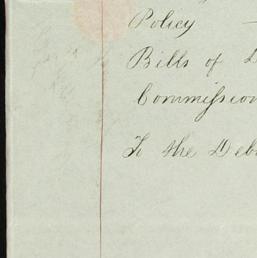 Policy
Bills of
Commission
To the